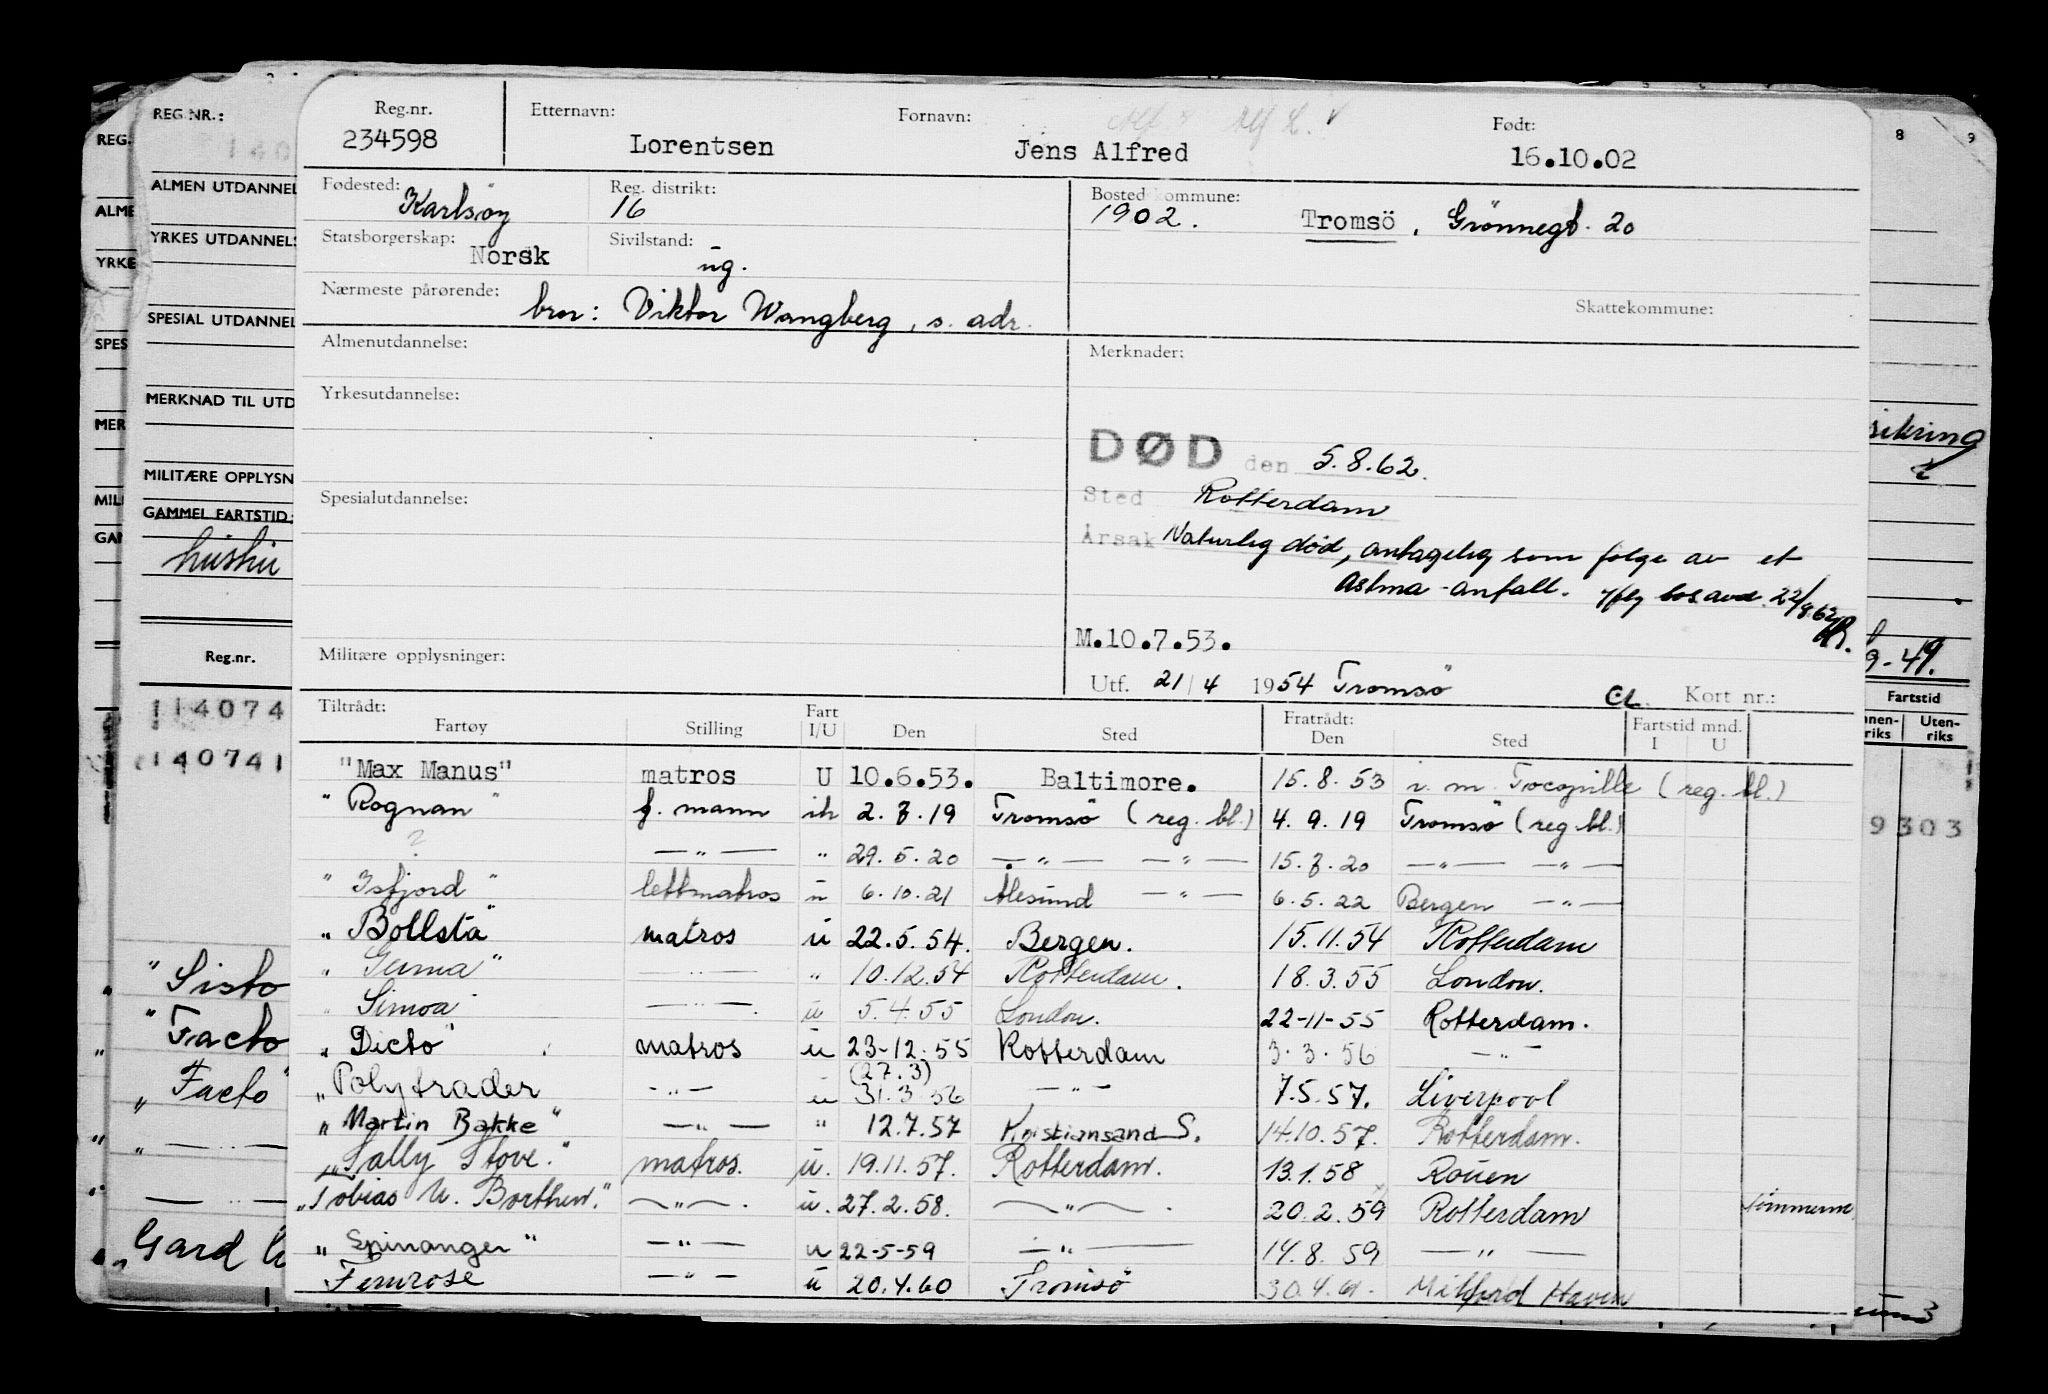 Reg.nr. Etternavn: Fornavn: Født:
234598 Lorentsen Jens Alfred 16.10.02
Fødested: Karlsöy Reg. distrikt: 16 Bostedkommune: 1902. Tromsö, Grönnegt. 20
Statsborgerskap: Norsk Sivilstand: ug.
Nærmeste pårørende: bror: Viktor Wangberg, s. adr. Skattekommune:
Almenutdannelse: Merknader:
Yrkesutdannelse:
DØD den 5.8.62.
Spesialutdannelse: Sted Rotterdam
Årsak Naturlig død, antagelig som følge av et
astma-anfall. 22/8.62
M.10.7.53.
Militære opplysninger: Utf. 21/4 1954 Tromsö Kort nr.:
Tiltrådt: Fartøy Stilling Fart I/U Den Sted Fratrådt: Den Sted Fartstid mnd. I U
"Max Manus" matros U 10.6.53. Baltimore. 15.8.53 (reg. bl.)
" Rognan " 2.7.19 Tromsö (reg. bl.) 4.9.19 Tromsö (reg bl.)
? —"— " 29.5.20 —"— —"— 15.7.20 —"— —"—
" Isfjord " lettmatros u 6.10.21 Ålesund —"— 6.5.22 Bergen —"—
" Bollsta" matros u 22.5.54. Bergen. 15.11.54 Rotterdam
" —"— " 10.12.54 Rotterdam. 18.3.55 London.
" Simoa" —"—. u 5.4.55 London. 22-11-55 Rotterdam.
" Dicto" matros u 23-12.55 Rotterdam 3.3.56 —"—
(27.3)
"Polytrader —"— u 31.3 56 —"— 7.5.57. Liverpool
" Martin Bakke" —"— " 12.7.57 Kristiansand S. 14.10.57. Rotterdam.
"Sally Stove." matros. u. 19.11.57. Rotterdam. 13.1.58 Rouen
"Tobias U. Borthen." —"—. u. 27.2.58. —"—. 20.2.59 Rotterdam
" Spinanger" —"— u 22-5-59 —"— 14.8.59 —"—
Fernrose —"— u 20.4.60 Tromsö 30.4.61. Milford Haven
REG.NR.:
ALMEN UTDANNEL
YRKES UTDANNELS
SPESIAL UTDANNEL
MERKNAD TIL UTD
MILITÆRE OPPLYSN
GAMMEL FARTSTID:
Reg.nr.
114074
140741
" Sisto
" Facto
" Facto"
" — —
— " —
"Gard
REG.
ALME
YRKE
SPES
MER
MILI
GAM
8 9
sikring
9-49.
Fartstid
nnenriks Utenriks
9303